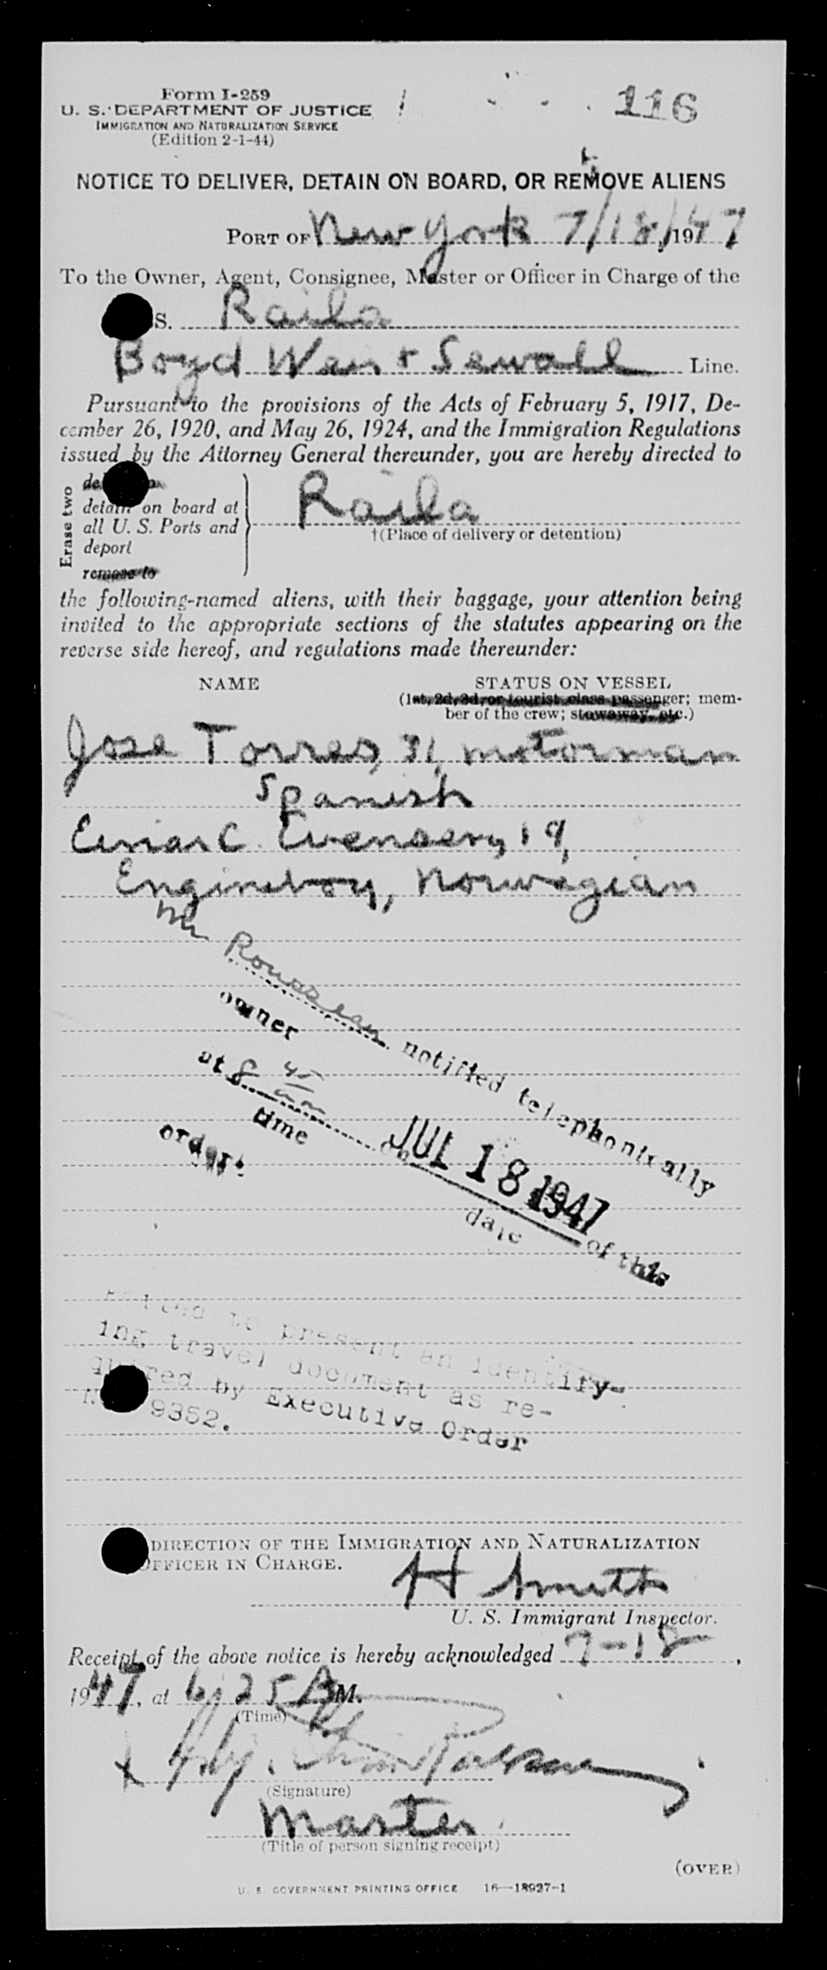 Form I-259
U. S. DEPARTMENT OF JUSTICE
IMMIGRATION AND NATURALIZATION SERVICE
(Edition 2-1-44)
116
NOTICE TO DELIVER, DETAIN ON BOARD, OR REMOVE ALIENS
PORT OF New York 7/18/, 1947
To the Owner, Agent, Consignee, Master or Officer in Charge of the
S. Raila
Boyd Weir & Sewall Line.
Pursuant to the provisions of the Acts of February 5, 1917, De-
cember 26, 1920, and May 26, 1924, and the Immigration Regulations
issued by the Attorney General thereunder, you are hereby directed to
Erase two
detain on board at
all U. S. Ports and
deport
remove to
Raila
†(Place of delivery or detention)
the following-named aliens, with their baggage, your attention being
invited to the appropriate sections of the statutes appearing on the
reverse side hereof, and regulations made thereunder:
NAME STATUS ON VESSEL
(1st, 2d, 3d, or tourist class passenger; mem-
ber of the crew; stowaway, etc.)
Jose Torres, 31, motorman
Spanish
Einar C. Evensen, 19,
Engineboy, Norwegian
Mr Rousseau notified telephonically
owner
at 8 45 am on JUL 18 1947 of this
time date
order.
Failed to present an identify-
ing travel document as re-
quired by Executive Order
9352.
DIRECTION OF THE IMMIGRATION AND NATURALIZATION
OFFICER IN CHARGE.
H Smith
U. S. Immigrant Inspector.
Receipt of the above notice is hereby acknowledged 7-18,
1947, at 6:25 AM.
(Time)
X
(Signature)
Master
(Title of person signing receipt)
(OVER)
U. S. GOVERNMENT PRINTING OFFICE 16—18927-1